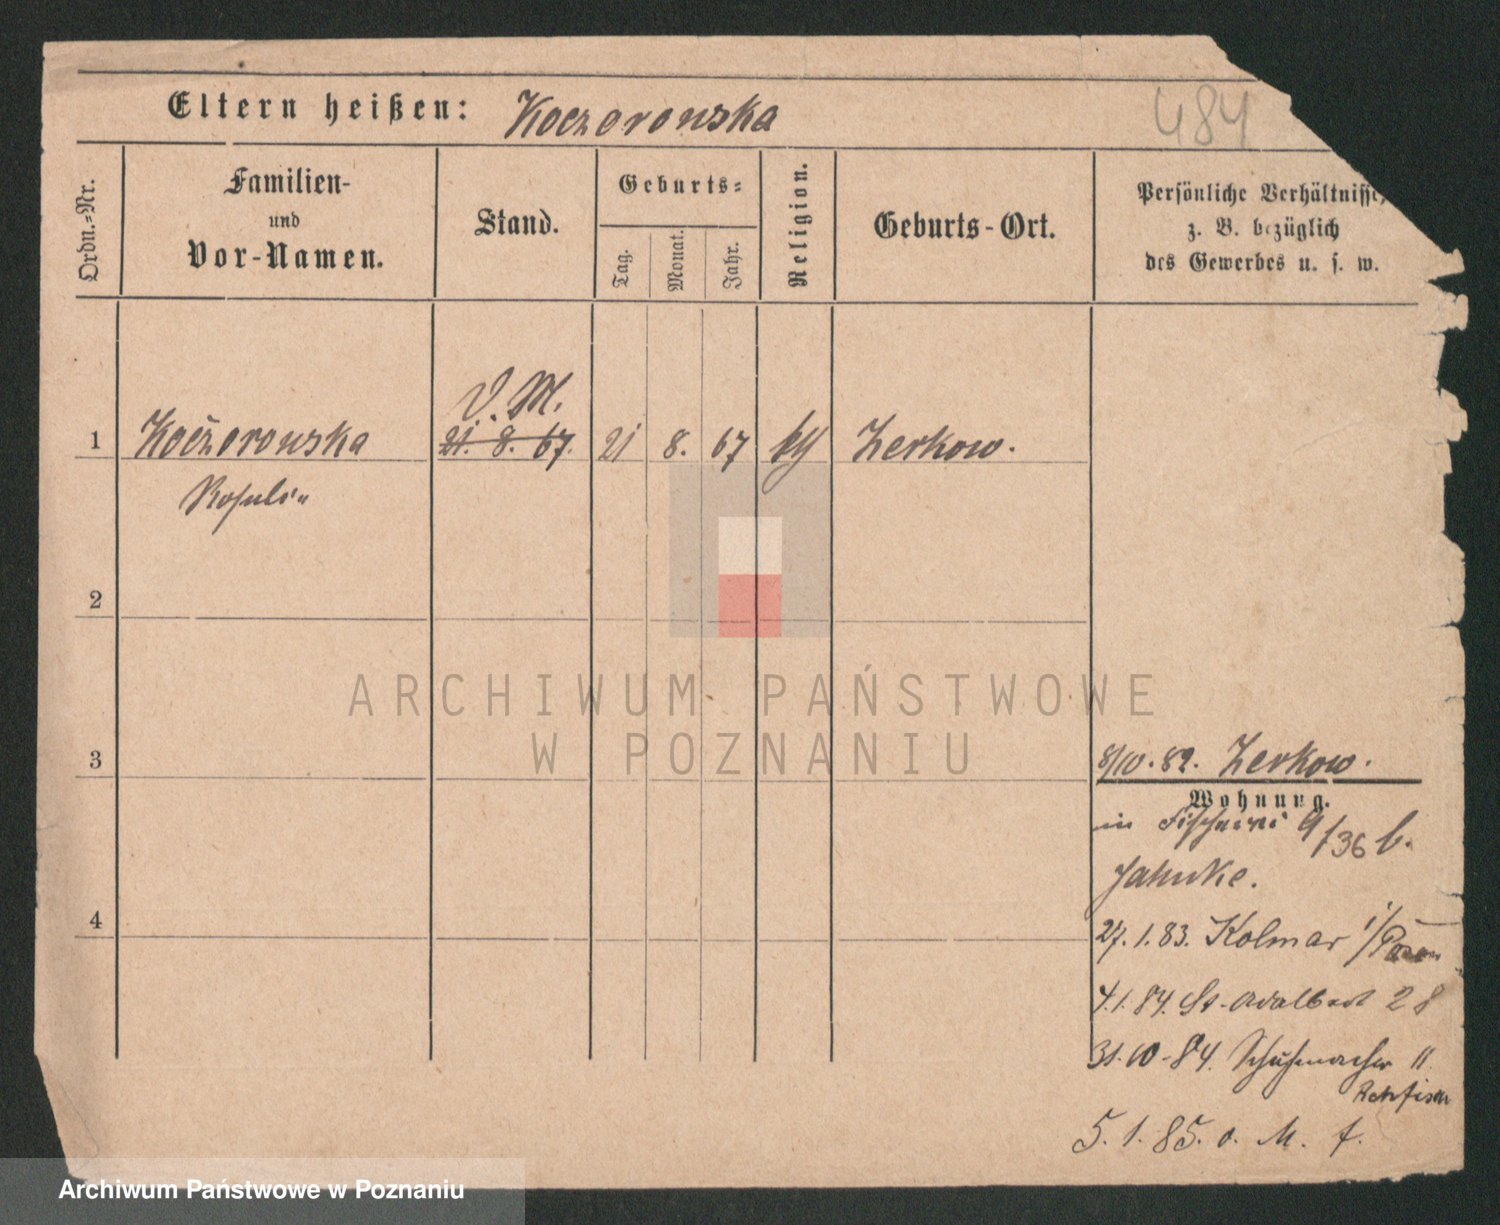 Eltern heißen: Koczorowska
484
Ordn.-Nr.
Familien-
und
Vor-Namen.
Stand.
Geburts-
Tag.
Monat.
Jahr.
Religion.
Geburts-Ort.
Persönliche Verhältnisse,
z. B. bezüglich
des Gewerbes u. s. w.
D. M.
1 Koczorowska 21. 8. 67. 21 8. 67 Zerkow.
2
3
4
8/10. 82. Zerkow.
Wohnung.
in Fischerei 9/36 b.
Jahnke.
27. 1. 83. Kolmar i/Posen
4. 1. 84. St. Adalbert 28
31. 10. 84. Schuhmacher 11
5. 1. 85. o. M. f.
ARCHIWUM PAŃSTWOWE
W POZNANIU
Archiwum Państwowe w Poznaniu